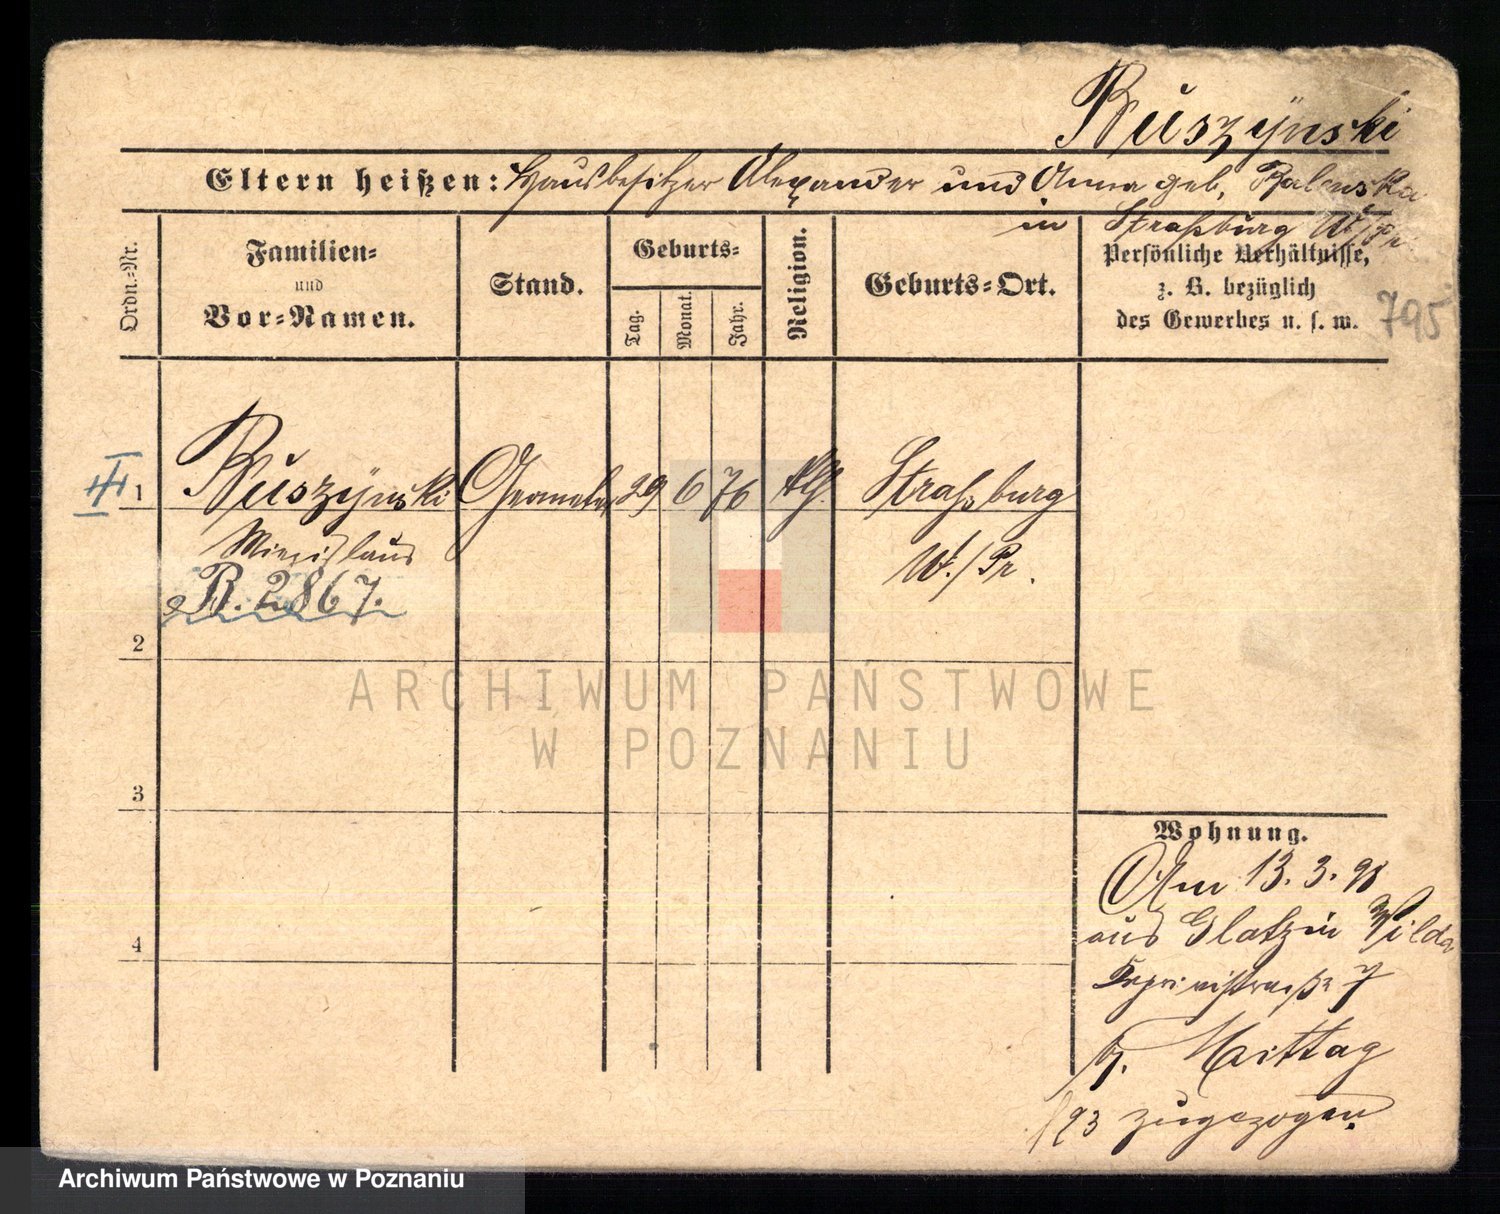 Buszÿnski
Eltern heißen: Hausbesitzer Alexander und Anna geb,
in Straßburg W/Pr.
Ordn.-Nr.
Familien-
und
Vor-Namen.
Stand.
Geburts-
Tag.
Monat.
Jahr.
Religion.
Geburts-Ort.
Persönliche Verhältnisse,
z. B. bezüglich
des Gewerbes u. s. w.
795
III
1
Buszÿnski Geometer 29 6 76 kth. Straßburg
Miezislaus W./Pr.
B. 2867.
2
3
4
Wohnung.
Am 13. 3. 98
aus Glatz in Wilda
7
b. Mittag
193 zugezogen.
ARCHIWUM PAŃSTWOWE
W POZNANIU
Archiwum Państwowe w Poznaniu